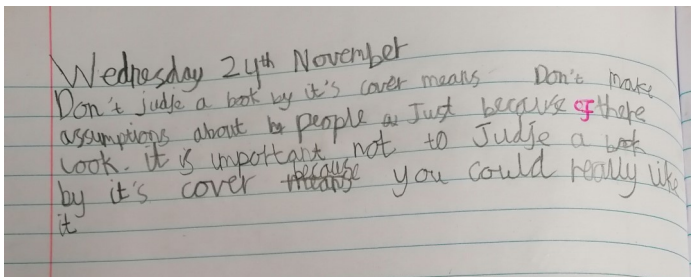 Wednesday 24th November
Don't judje a book by it's cover means Don't make
assumptions about people Just because of there
look. it is important not to Judje a book
by it's cover because you could really like
it